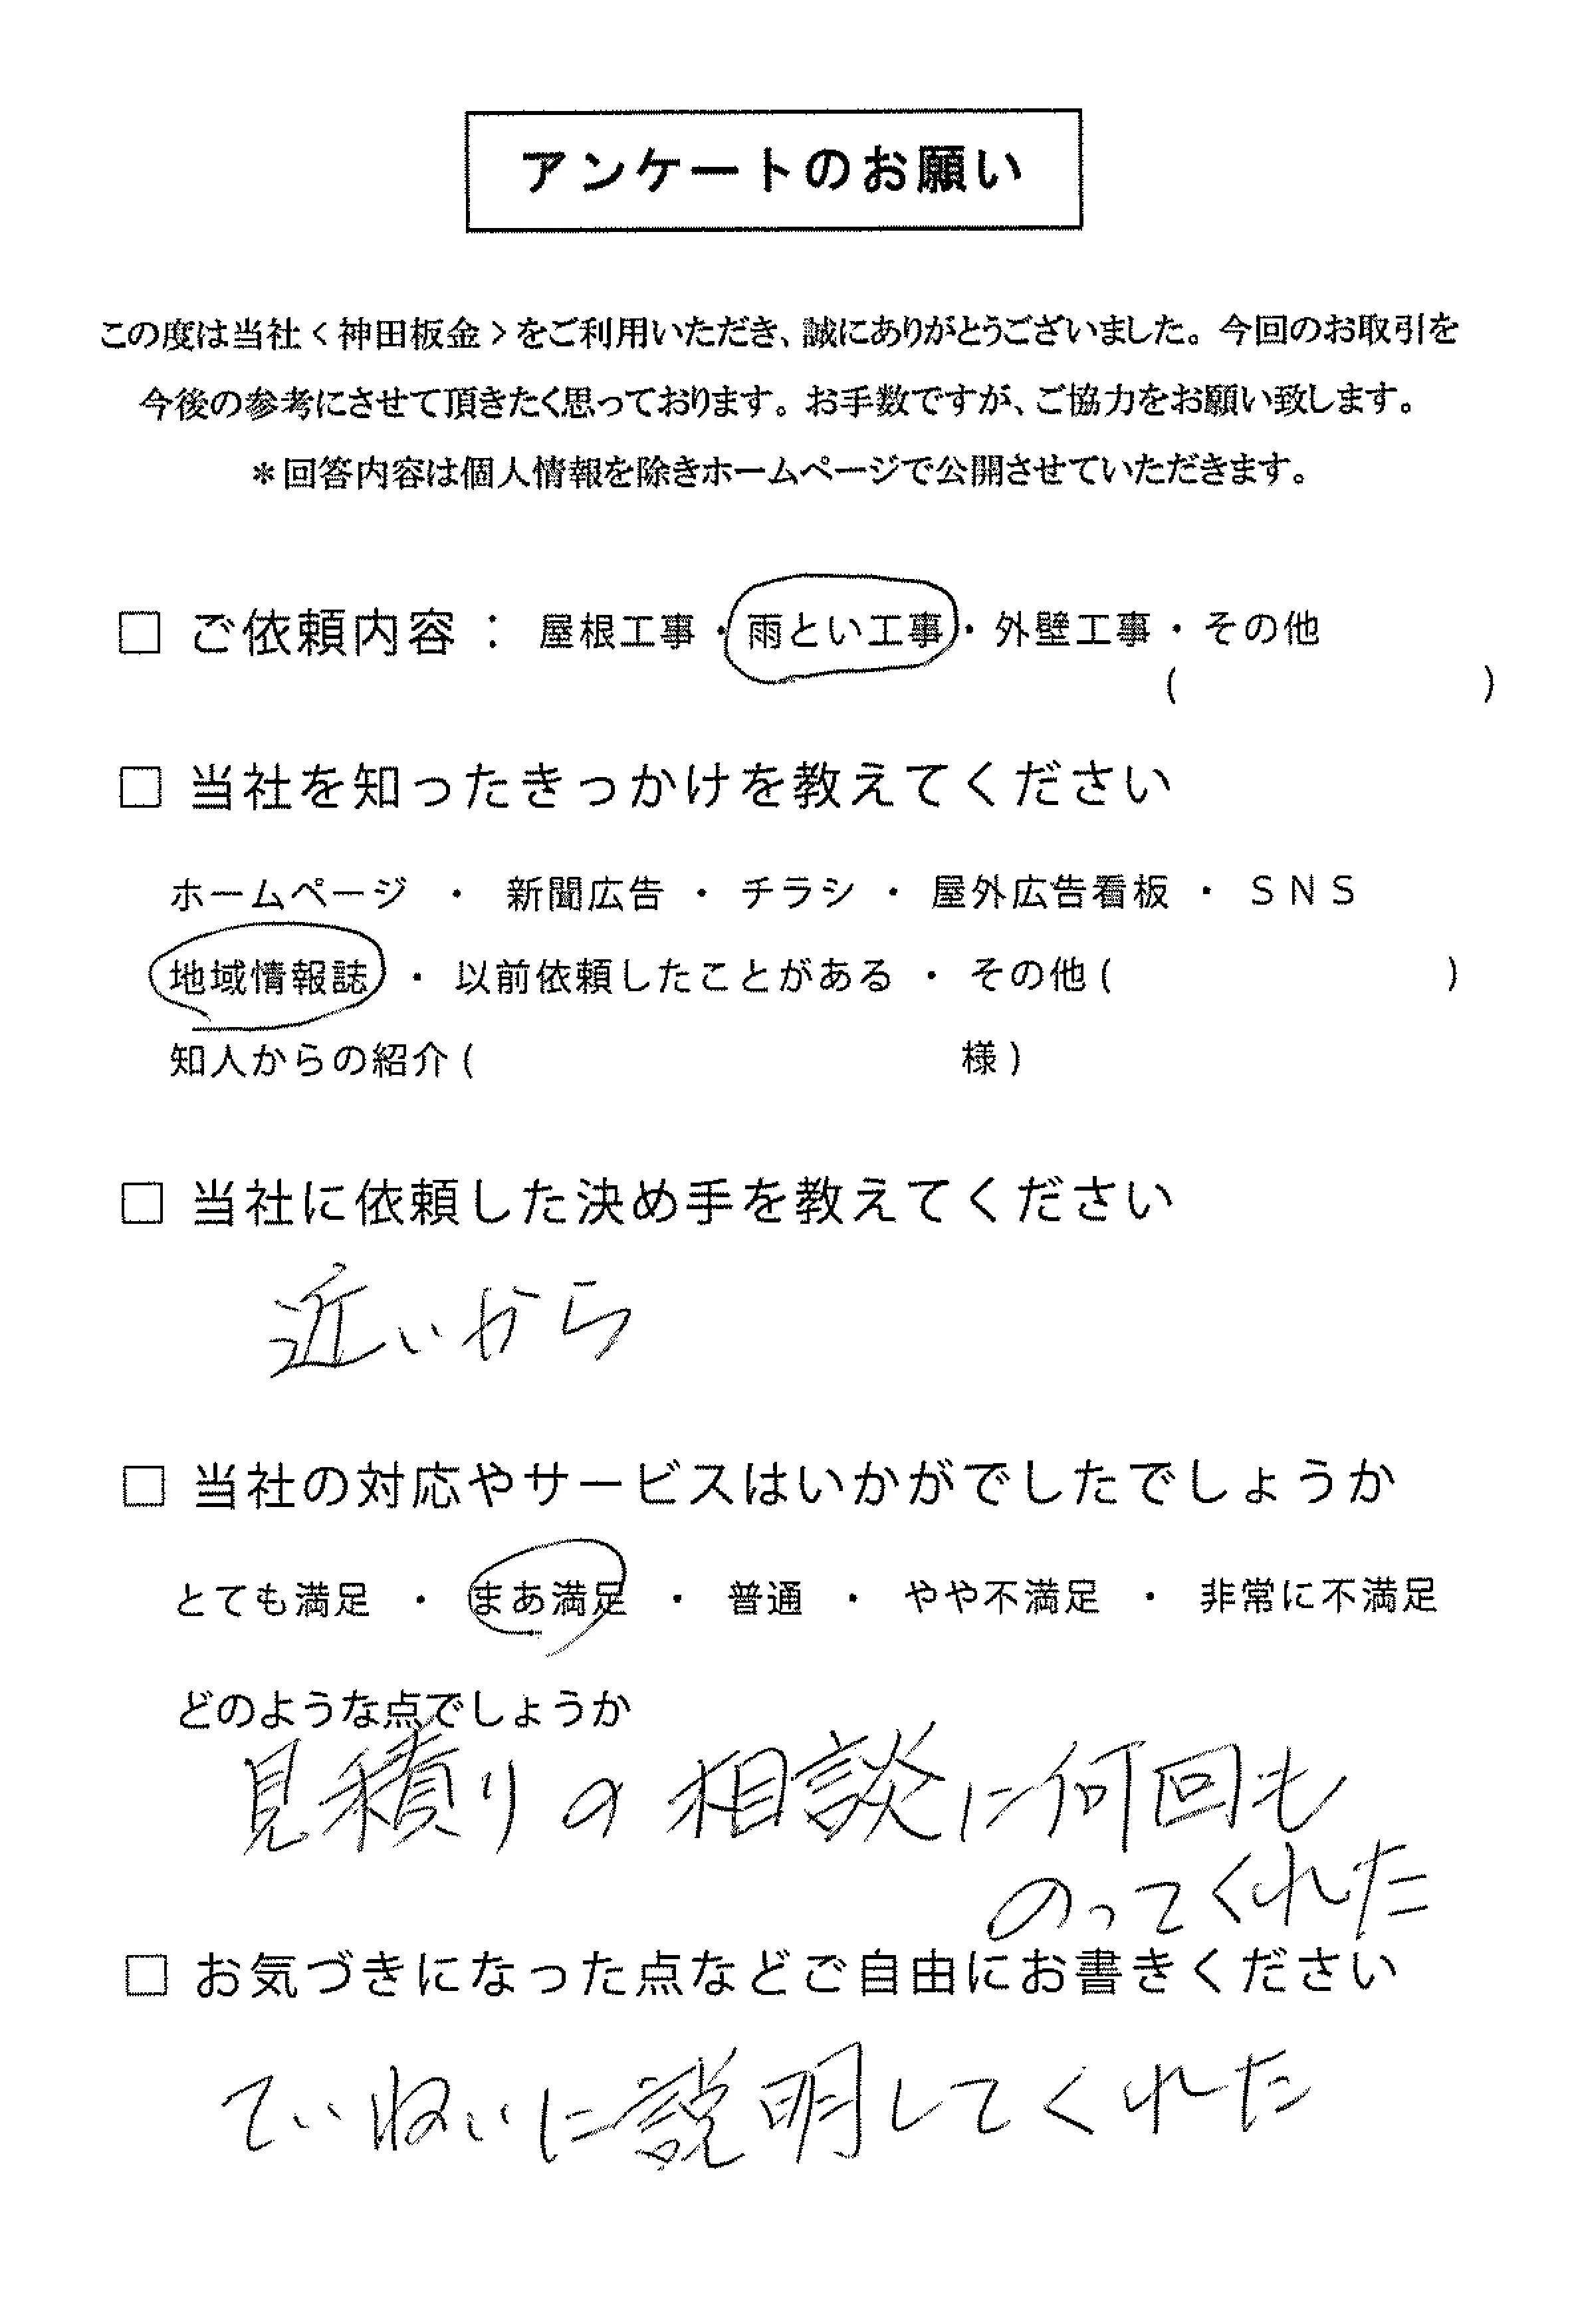 アンケートのお願い
この度は当社〈神田板金〉をご利用いただき、誠にありがとうございました。今回のお取引を
今後の参考にさせて頂きたく思っております。お手数ですが、ご協力をお願い致します。
＊回答内容は個人情報を除きホームページで公開させていただきます。
□ ご依頼内容： 屋根工事・雨とい工事・外壁工事・その他
( )
□ 当社を知ったきっかけを教えてください
ホームページ ・ 新聞広告 ・ チラシ ・ 屋外広告看板 ・ ＳＮＳ
地域情報誌 ・ 以前依頼したことがある ・ その他 ( )
知人からの紹介 ( 様 )
□ 当社に依頼した決め手を教えてください
近いから
□ 当社の対応やサービスはいかがでしたでしょうか
とても満足 ・ まあ満足 ・ 普通 ・ やや不満足 ・ 非常に不満足
どのような点でしょうか
見積りの相談に何回も
のってくれた
□ お気づきになった点などご自由にお書きください
ていねいに説明してくれた